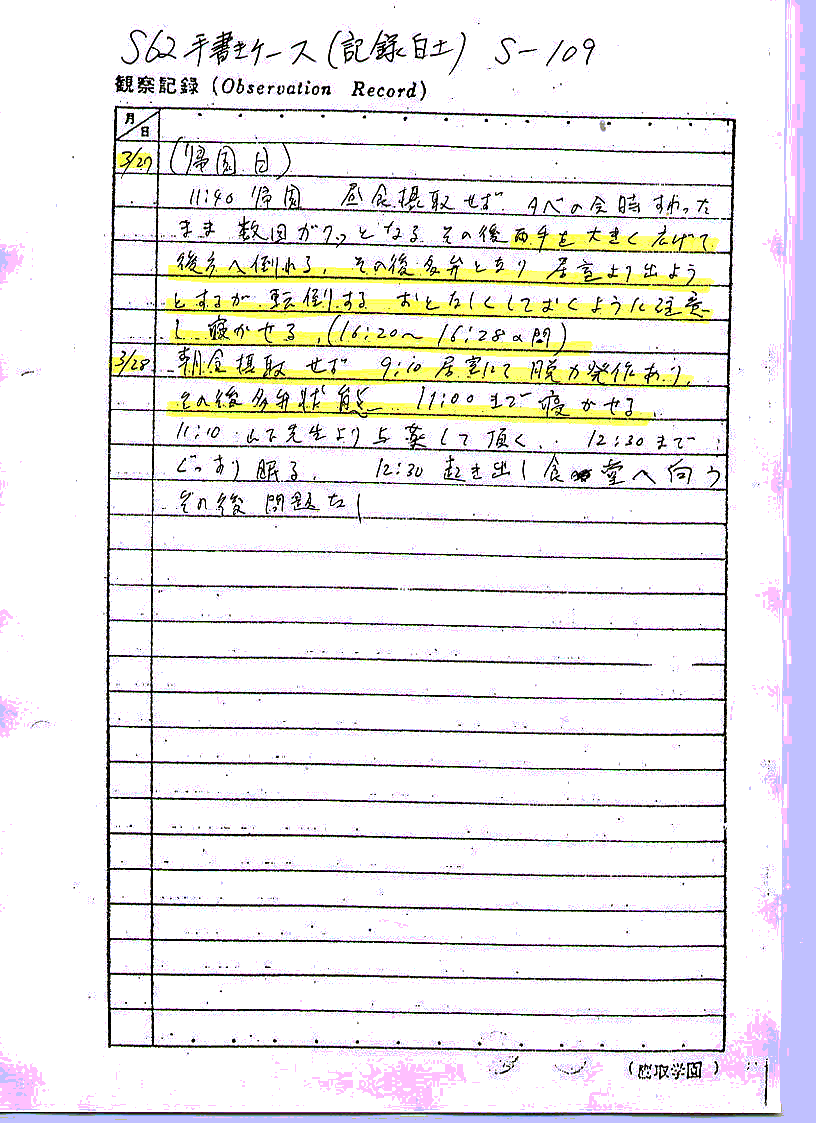 S62手書きケース(記録白土) S-109
観察記録 (Observation Record)
月
日
3/27 (帰園日)
11:40 帰園 昼食摂取せず 夕べの会時すわった
まま 数回ガクッとなる その後両手を大きく広げて
後方へ倒れる。その後多弁となり 居室より出よう
とするが 転倒する おとなしくしておくように注意
し 寝かせる。(16:20〜16:28の間)
3/28 朝食摂取せず 9:10 居室にて脱力発作あり。
その後多弁状態 11:00まで寝かせる。
11:10 山下先生より与薬して頂く。 12:30まで
ぐっすり眠る。 12:30 起き出し食堂へ向う
その後問題なし
(鷹取学園)